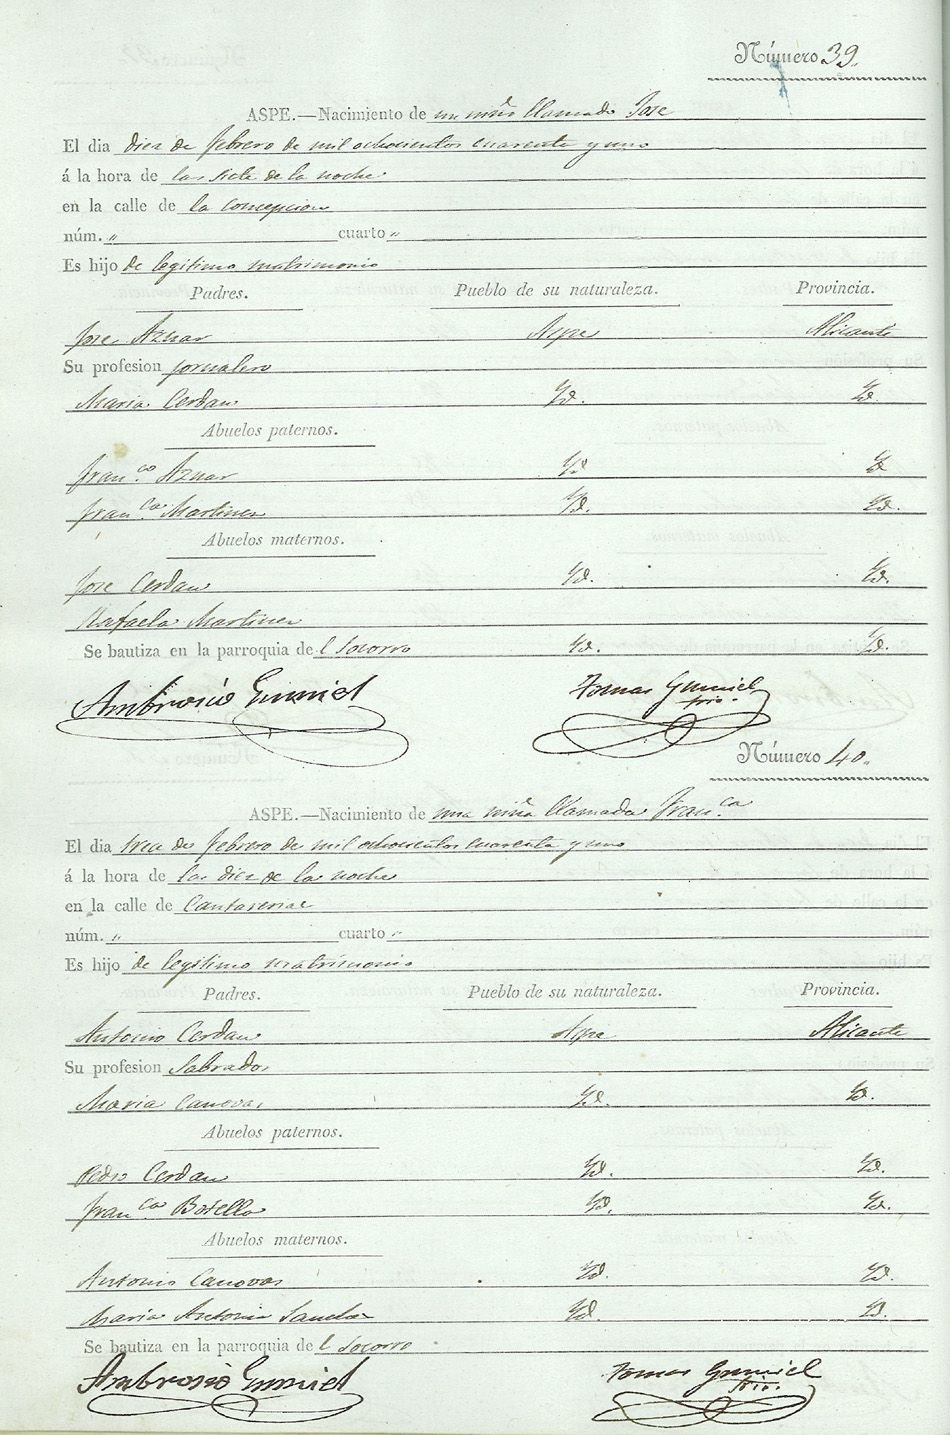 Número 39.
ASPE.—Nacimiento de un niño llamado Jose
El dia diez de febrero de mil ochocientos cuarenta y uno
á la hora de las siete de la noche
en la calle de la Concepcion
núm. " cuarto "
Es hijo de legitimo matrimonio
Padres. Pueblo de su naturaleza. Provincia.
Jose Aznar Aspe Alicante
Su profesion jornalero
Maria Cerdan Yd. Yd.
Abuelos paternos.
Fran.co Aznar Yd Yd
Fran.ca Martinez Yd. Yd.
Abuelos maternos.
Jose Cerdan Yd. Yd.
Rafaela Martinez
Se bautiza en la parroquia del Socorro Yd. Yd.
Ambrosio Gumiel Tomas Gumiel
Srio.
Número 40.
ASPE.—Nacimiento de una niña llamada Fran.ca
El dia tres de febrero de mil ochocientos cuarenta y uno
á la hora de las diez de la noche
en la calle de Cantarerias
núm. " cuarto "
Es hijo de legitimo matrimonio
Padres. Pueblo de su naturaleza. Provincia.
Antonio Cerdan Aspe Alicante
Su profesion Labrador
Maria Canovas Yd. Yd.
Abuelos paternos.
Pedro Cerdan Yd. Yd.
Fran.ca Botella Yd. Yd.
Abuelos maternos.
Antonio Canovas Yd. Yd.
Maria Antonia Sanchez Yd. Yd.
Se bautiza en la parroquia del Socorro
Ambrosio Gumiel Tomas Gumiel
Srio.